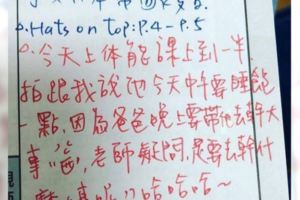 △.Hats on top:P.4-P.5
△.今天上体能課上到一半
拍跟我說他今天中午要睡飽
一點,因為爸爸晚上要帶他去幹大
事",老師疑問,是要去幹什
哈哈哈~